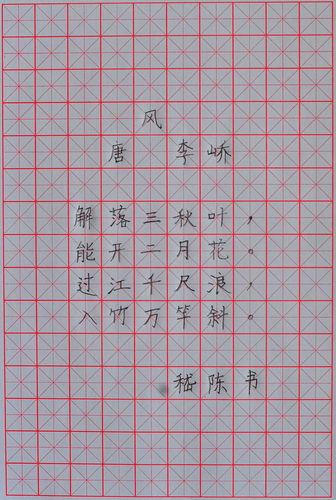 风
唐 李峤
解落三秋叶，
能开二月花。
过江千尺浪，
入竹万竿斜。
嵇陈书